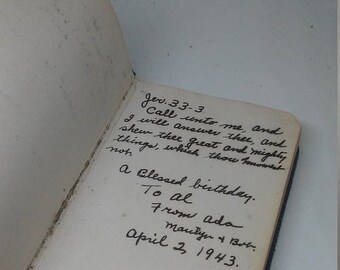 Jer. 33-3
Call unto me, and
I will answer thee, and
shew thee great and mighty
things, which thou knowest
not.
A Blessed birthday.
To Al
From Ada
Marilyn & Bob.
April 2, 1943.